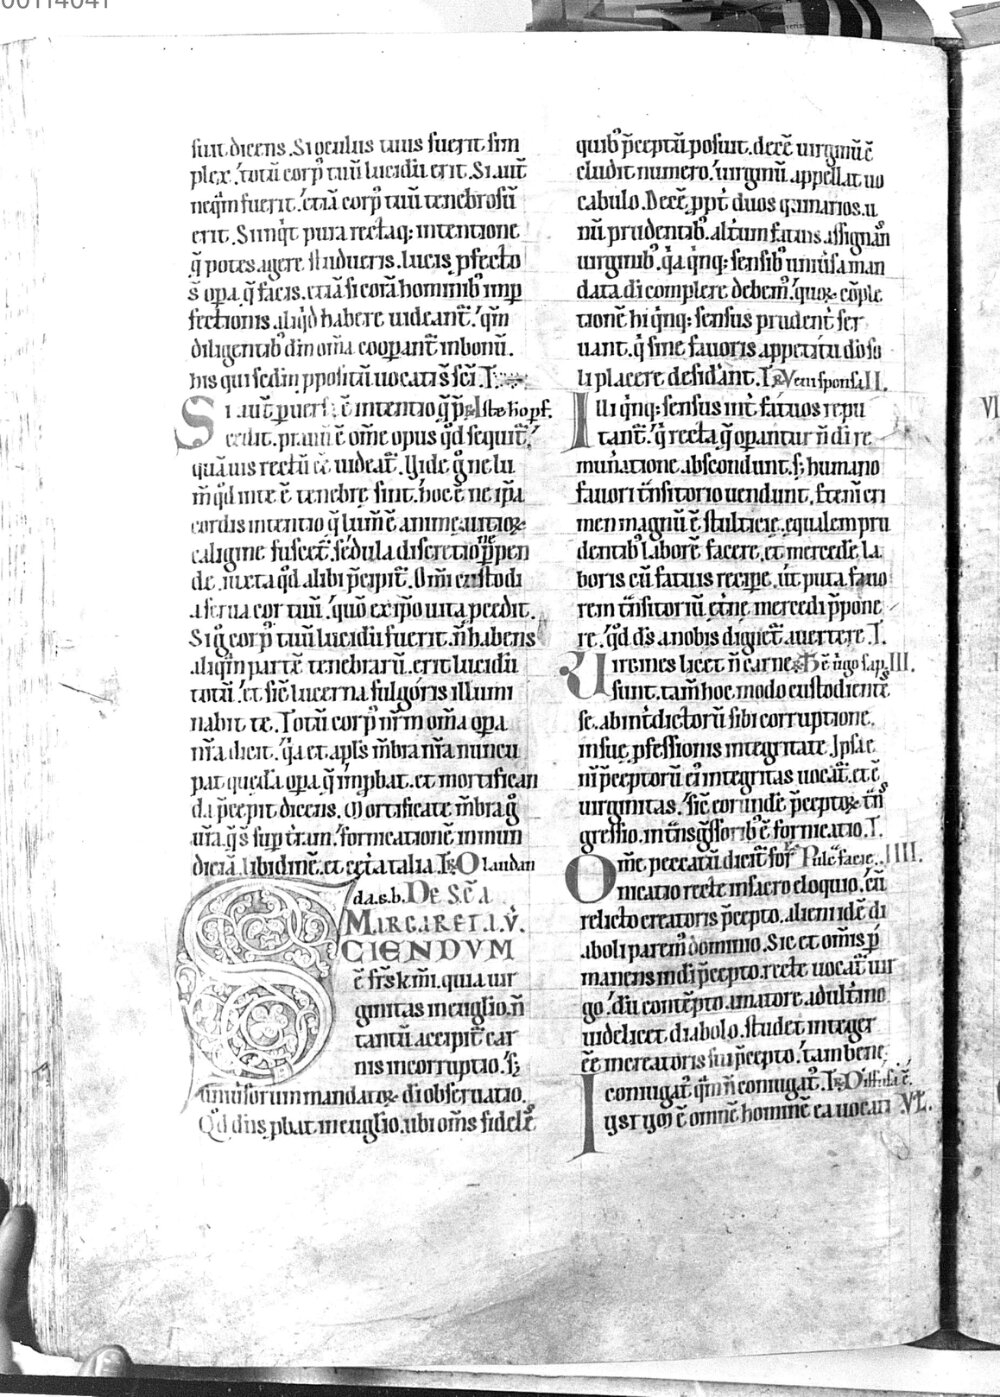 00114041
sunt. dicens. Si oculus tuus fuerit sim
plex. totū corp᷒ tuū lucidū erit. Si aut̄
neq̄m fuerit. etiā corp᷒ tuū tenebrosū
erit. Si inq̇t pura rectaq; intentione
q̄ potes agere studueris. lucis ꝓfecto
s̄ opa. q̄ facis. etiā si corā hominib᷒ imp
fectionis aliqd̄ habere uideant̄. qm̄
diligentib᷒ dm̄ om̄ia cooꝑant̄ in bonū.
his qui scdm̄ ꝓpositū uocati s̄ sc̄i. T.
Si aut̄ puersa ē intentio q̄ p̄ Iste ho pf.
cedit. prauū ē om̄e opus qd̄ sequit̄.
quāuis rectū ēē uideat̄. Vide ḡ ne lu
m̄ qd̄ in te ē tenebre sint. hoc ē ne ip̄a
cordis intentio q̄ lum̄ ē anime. uitioꝝ
caligine fuscet̄. sedula discretione ꝑpen
de. iuxta qd̄ alibi p̄cipit̄. Om̄i custodi
a serua cor tuū. quō ex ip̄o uita ꝓcedit.
Si ḡ corp᷒ tuū lucidū fuerit. n̄ habens
aliqm̄ partē tenebrarū. erit lucidū
totū. et sic̄ lucerna fulgoris illumi
nabit te. Totū corp᷒ nr̄m om̄ia opa
nr̄a dicit. q̇a et apl̄s m̄bra nr̄a nuncu
pat quedā opa. q̄ imꝓbat. et mortifican
da p̄cepit dicens. Mortificate m̄bra
ur̄a. q̄ s̄ sup tram. fornicationē inmun
diciā. libidinē. et cet̄a talia. R̷ O laudan
da. s. b. De Sc̄a
Margareta. V̄.
SCIENDVM
ē fr̄s km̄i. quia uir
ginitas in euglio. n̄
tantū accipit̄ car
nis incorruptio. s;
uniuersorum mandatoꝝ di obseruatio.
Qd̄ dn̄s ꝓbat in euglio. ubi om̄s fideles
quib᷒ p̄ceptū posuit. decē uirginū ē
cludit numero. uirginū appellat uo
cabulo. Decē. ꝓpt̄ duos q̇narios. u
nū prudentib᷒. alt̄um fatuis assignan̄
uirginib᷒. q̇a q̇nq; sensib᷒ uniūsa man
data di complere debem᷒. quoꝝ cōple
tionē hi q̇nq; sensus prudent̄ ser
uant. q̄ sine fauoris appetitu do so
li placere desidant. T. R̷ Veni sponsa II.
Illi q̇nq; sensus int̄ fatuos repu
tant̄. q̄ recta q̄ opantur n̄ di re
munatione abscondunt. s; humano
fauori tn̄sitorio uendunt. Extm̄ cri
men magnū ē stulticie. equalem pru
dentib᷒ laborē facere. et mercedē la
boris cū fatuis recipe. ut puta fauo
rem tn̄sitoriū et̄ne mercedi p̄pone
re. qd̄ ds̄ a nobis dignet̄ auertere. T.
Uirgines licet n̄ carne. Hec ē ūgo sap. III.
sunt. tam̄ hoc modo custodientes
se. ab int̄dictorū sibi corruptione.
in sue ꝓfessionis integritate. Ipsa ē
ni p̄ceptorū ei integritas uocat̄. et ē
uirginitas. sic̄ eorundē p̄ceptoꝝ tn̄s
gressio. in tn̄sgssorib᷒ ē fornicatio. T.
Om̄e peccatū dicit̄ for Pulc̄ facie. IIII.
nicatio recte in sacro eloquio. cū
relicto creatoris p̄cepto. alieni idē di
aboli partim᷒ dominio. Sic et om̄is p̄
manens in di p̄cepto. recte uocat̄ uir
go. dū contēpto amatore adultīno
uidelicet diabolo. studet integer
ēē in creatoris sui p̄cepto. tam bene
coniugat̄ qm̄ n̄ coniugat̄. R̷ Diffusa ē.
Igit ygo ē omnē hominē ea uocari VI.
VI